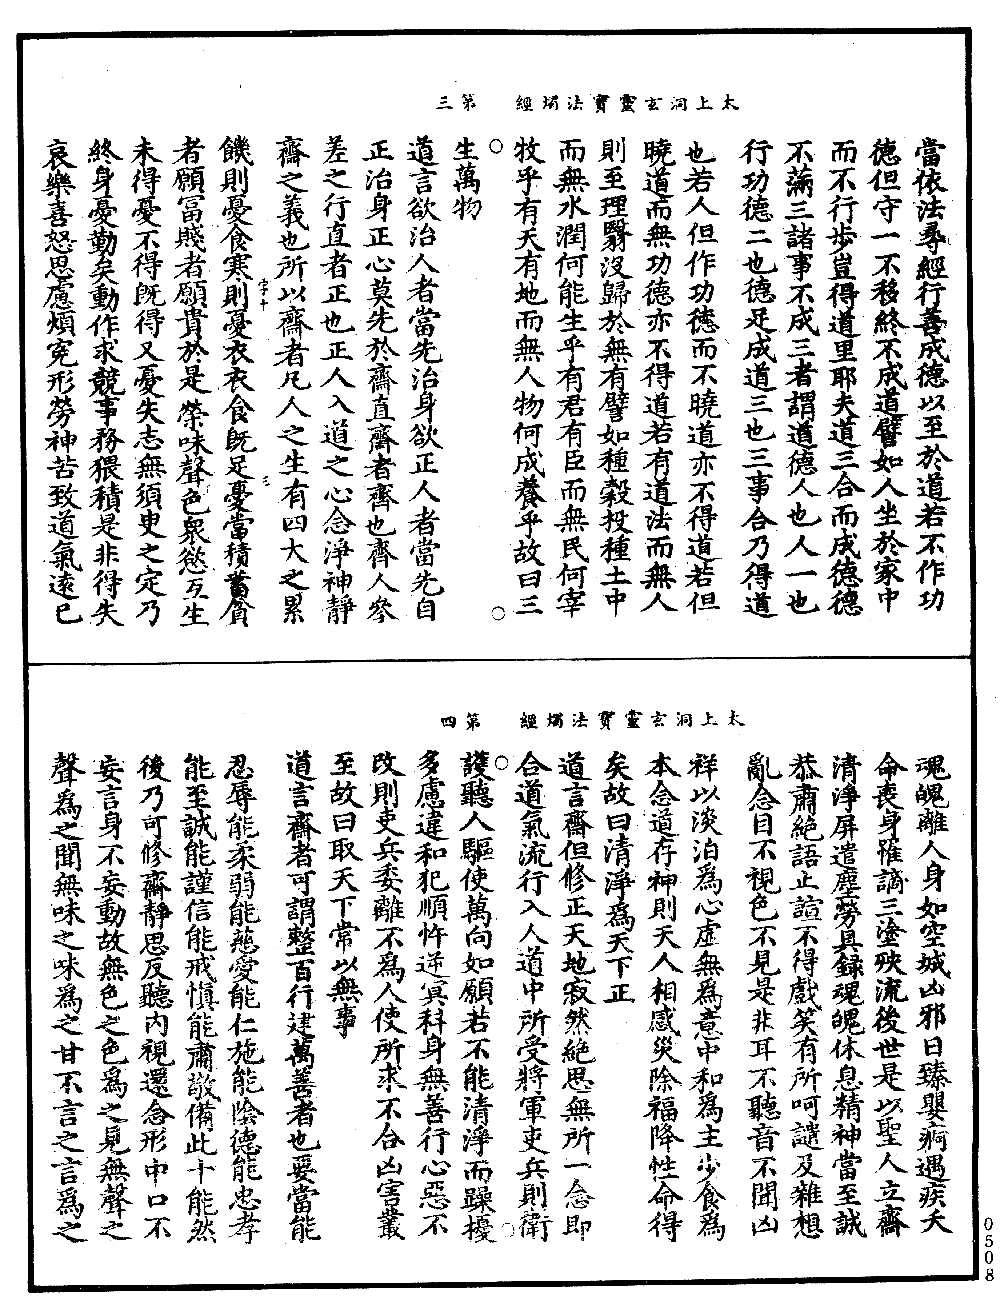 太上洞玄靈寶法燭經　第三
當依法尋經行善成德以至於道若不作功
德但守一不移終不成道譬如人坐於家中
而不行步豈得道里耶夫道三合而成德德
不滿三諸事不成三者謂道德人也人一也
行功德二也德足成道三也三事合乃得道
也若人但作功德而不曉道亦不得道若但
曉道而無功德亦不得道若有道法而無人
則至理翳沒歸於無有譬如種穀投種土中
而無水潤何能生乎有君有臣而無民何宰
牧乎有天有地而無人物何成養乎故曰三
生萬物
道言欲治人者當先治身欲正人者當先自
正治身正心莫先於齋直齋者齊也齊人參
差之行直者正也正人入道之心念淨神靜
齋之義也所以齋者凡人之生有四大之累
字十
三
饑則憂食寒則憂衣衣食旣足憂當積蓄貧
者願冨賤者願貴於是榮味聲色衆慾互生
未得憂不得旣得又憂失志無須㬰之定乃
終身憂勤矣動作求競事務猥積是非得失
哀樂喜怒思慮煩寃形勞神苦致道氣遠已
太上洞玄靈寶法燭經　第四
魂魄離人身如空城凶邪日臻嬰痾遇疾夭
命喪身罹謫三塗殃流後世是以聖人立齋
清淨屏遣塵勞具録魂魄休息精神當至誠
恭肅絶語止諠不得戲笑有所呵譴及雜想
亂念目不視色不見是非耳不聽音不聞凶
祥以淡泊爲心虛無爲意中和爲主少食爲
本念道存神則天人相感災除福降性命得
矣故曰清淨爲天下正
道言齋但修正天地寂然絶思無所一念即
合道氣流行入人道中所受將軍吏兵則衛
護聽人驅使萬向如願若不能清淨而躁擾
多慮違和犯順忤逆冥科身無善行心惡不
改則吏兵委離不爲人使所求不合凶害叢
至故曰取天下常以無事
道言齋者可謂整百行建萬善者也要當能
忍辱能柔弱能慈愛能仁施能陰德能忠孝
能至誠能謹信能戒慎能肅敬備此十能然
後乃可修齋靜思反聽内視還念形中口不
妄言身不妄動故無色之色爲之見無聲之
聲爲之聞無味之味爲之甘不言之言爲之
0508